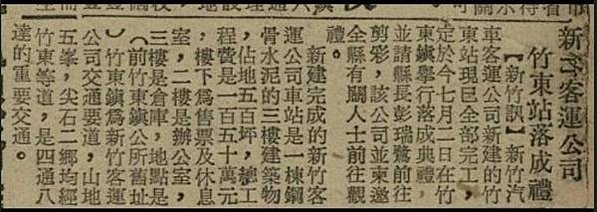 新竹客運公司
竹東站落成禮
【新竹訊】新竹汽
車客運公司新建的竹
東站現已全部完工，
定於今七月二日在竹
東鎮舉行落成典禮，
並請縣長彭瑞鷺前往
剪彩，該公司並柬邀
全縣有關人士前往觀
禮。
新建完成的新竹客
運公司車站是一棟鋼
骨水泥的三樓建築物
，佔地五百坪，總工
程費是一百五十萬元
，樓下爲售票及休息
室，二樓是辦公室，
三樓是倉庫，地點是
（前竹東鎭公所舊址
）竹東鎭爲新竹客運
公司交通要道，山地
五峯，尖石二鄉均經
竹東等道，是四通八
達的重要交通。